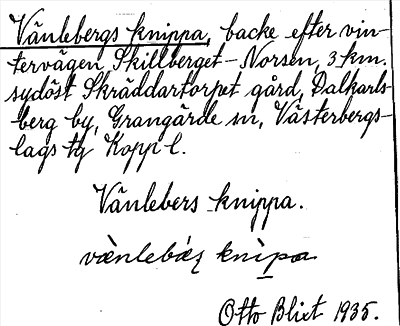 Vänlebergs knippa, backe efter vin-
tervägen Skillberget - Norsen, 3 km.
sydöst Skräddartorpet gård, Dalkarls-
berg by, Grangärde sn, Västerbergs-
lags tg Kopp l.
Vänlebers knippa.
knìpa
Otto Blixt 1935.